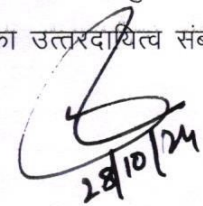 का उत्तरदायित्व
28/10/24